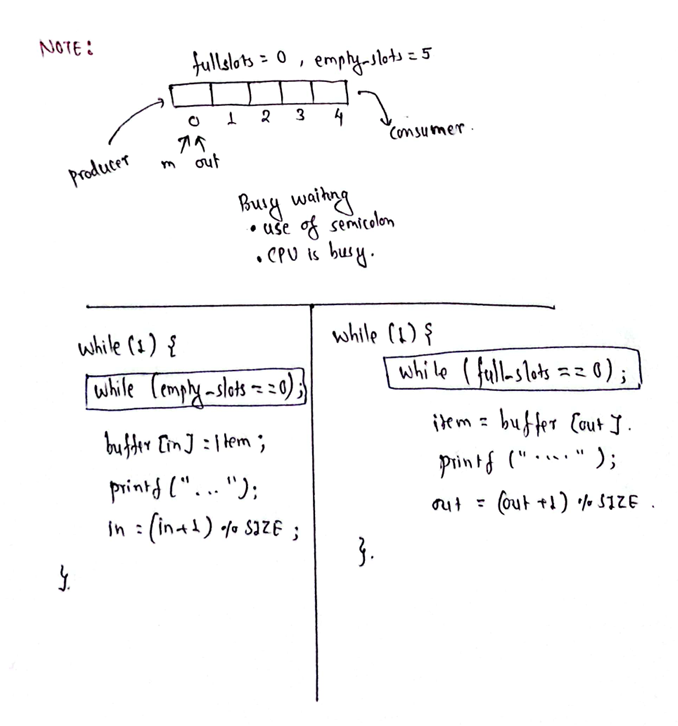 NOTE:
fullslots = 0 , empty-slots = 5
0 1 2 3 4
consumer.
producer
in out
Busy waiting
• use of semicolon
• CPU is busy.
while (1) {
while (empty-slots == 0);
buffer [in] = item ;
printf ("...");
in = (in+1) % SIZE ;
}.
while (1) {
while (full-slots == 0) ;
item = buffer [out].
printf ("....");
out = (out +1) % SIZE .
}.